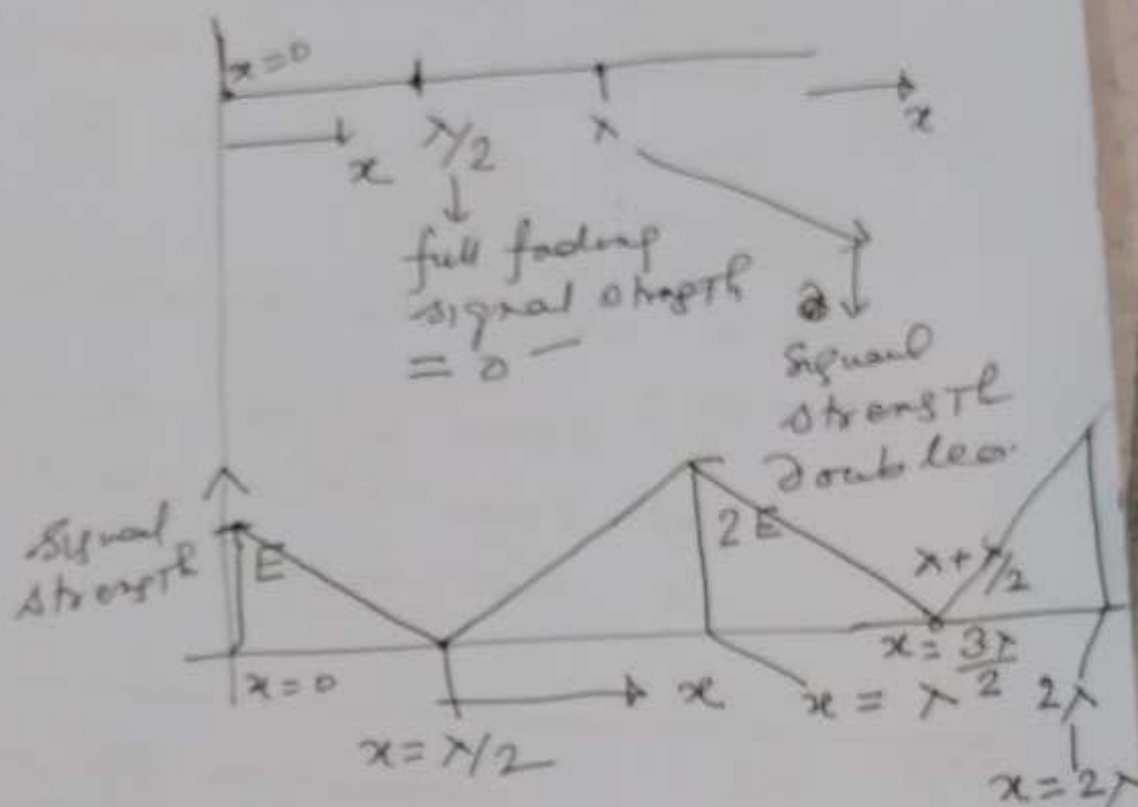 x=0
x
λ/2
x
λ
x
full fading
signal strength
= 0
Signal
strength
doubles.
Signal
strength
E
2E
λ+λ/2
x=0
x
x = λ
x = 3λ/2
2λ
x = λ/2
x=2λ